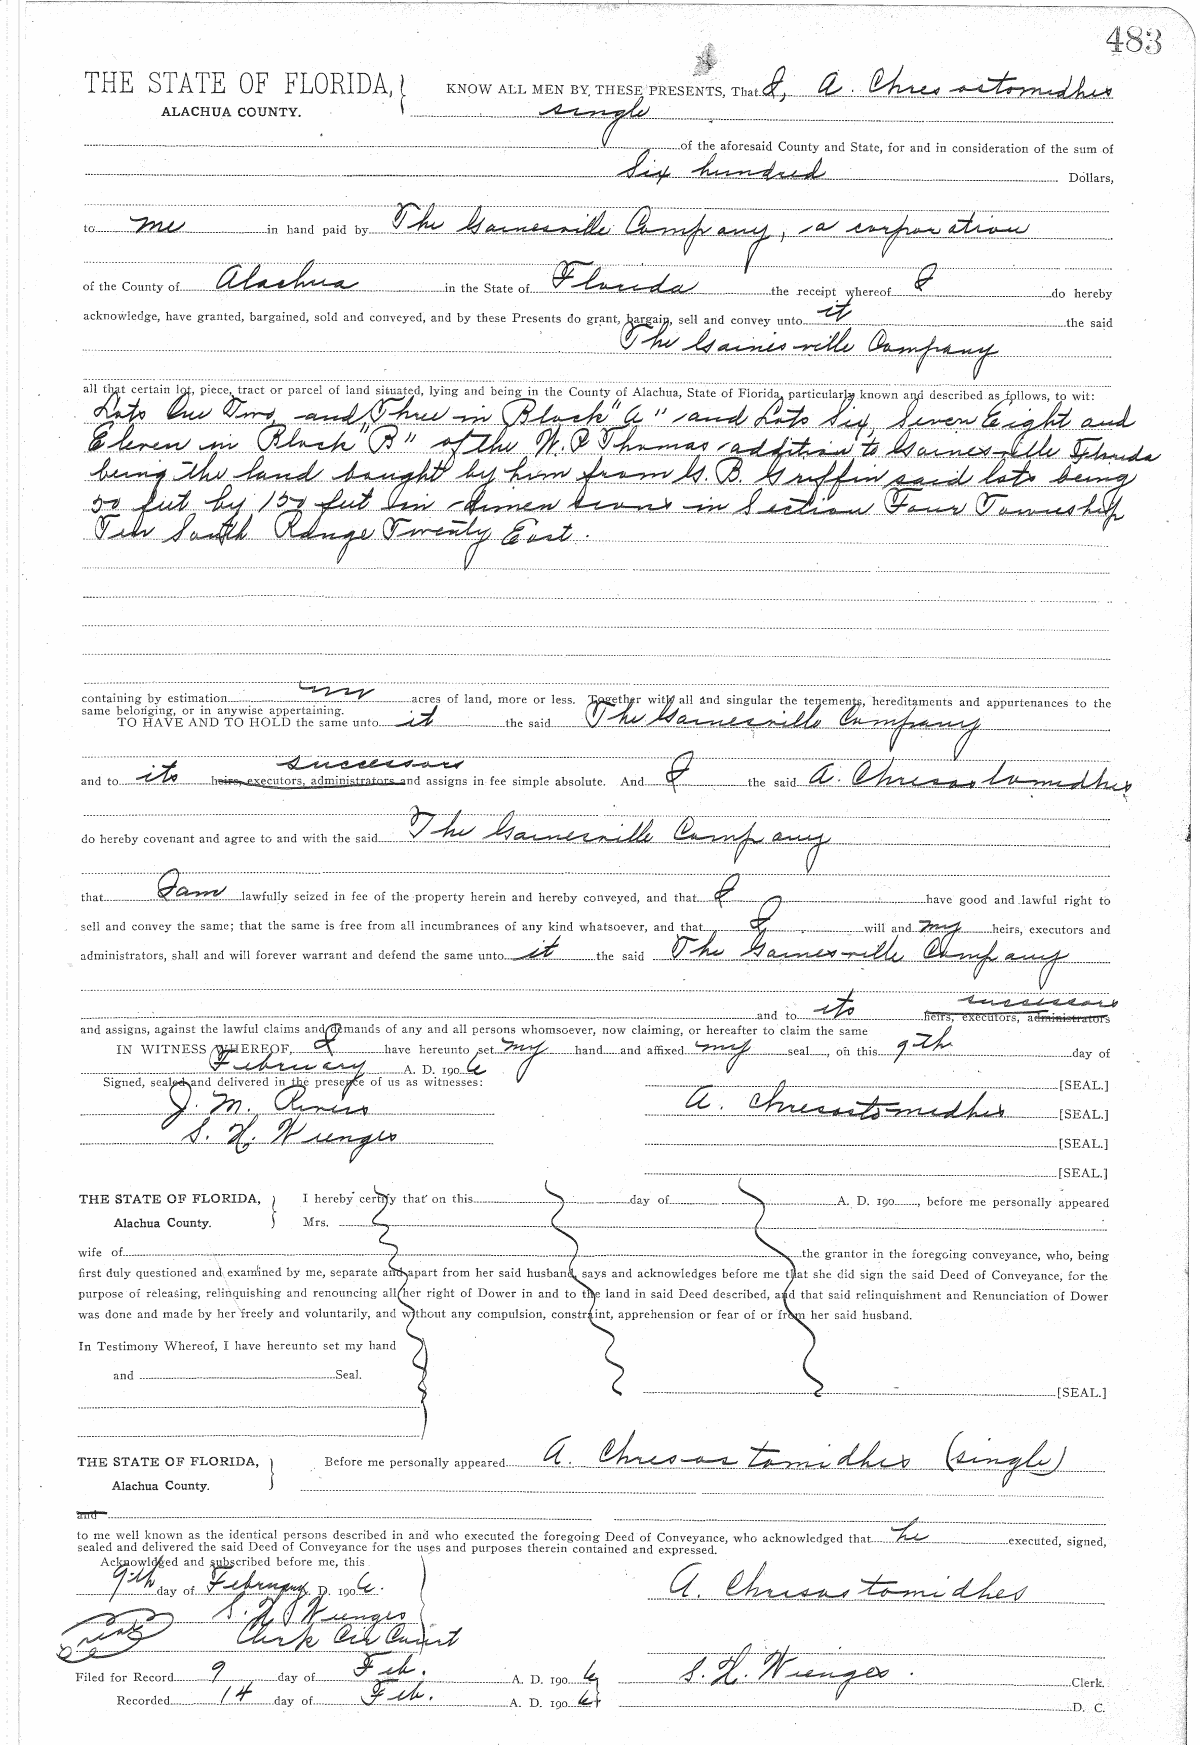 483
THE STATE OF FLORIDA, KNOW ALL MEN BY THESE PRESENTS, That I, A. Chresostomidhes
ALACHUA COUNTY. single
of the aforesaid County and State, for and in consideration of the sum of
Six hundred Dollars,
to me in hand paid by The Gainesville Company, a corporation
of the County of Alachua in the State of Florida the receipt whereof I do hereby
acknowledge, have granted, bargained, sold and conveyed, and by these Presents do grant, bargain, sell and convey unto it the said
The Gainesville Company
all that certain lot, piece, tract or parcel of land situated, lying and being in the County of Alachua, State of Florida, particularly known and described as follows, to wit:
Lots One Two, and Three in Block "A" and Lots Six, Seven Eight and
Eleven in Block "B" of the W. P Thomas addition to Gainesville Florida
being the land bought by him from G. B. Griffin said lots being
50 feet by 150 feet in dimensions in Section Four Township
Ten South Range Twenty East.
containing by estimation acres of land, more or less. Together with all and singular the tenements, hereditaments and appurtenances to the
same belonging, or in anywise appertaining.
TO HAVE AND TO HOLD the same unto it the said The Gainesville Company
successors
and to its heirs, executors, administrators and assigns in fee simple absolute. And I the said A. Chresostomidhes
do hereby covenant and agree to and with the said The Gainesville Company
that I am lawfully seized in fee of the property herein and hereby conveyed, and that I have good and lawful right to
sell and convey the same; that the same is free from all incumbrances of any kind whatsoever, and that I will and my heirs, executors and
administrators, shall and will forever warrant and defend the same unto it the said The Gainesville Company
successors
and to its heirs, executors, administrators
and assigns, against the lawful claims and demands of any and all persons whomsoever, now claiming, or hereafter to claim the same
IN WITNESS WHEREOF, I have hereunto set my hand and affixed my seal, on this 9th day of
February A. D. 1906
Signed, sealed and delivered in the presence of us as witnesses: [SEAL.]
J. M. Rivers A. Chresostomidhes [SEAL.]
S. H. Wienges [SEAL.]
[SEAL.]
THE STATE OF FLORIDA, I hereby certify that on this day of A. D. 190 , before me personally appeared
Alachua County. Mrs.
wife of the grantor in the foregoing conveyance, who, being
first duly questioned and examined by me, separate and apart from her said husband, says and acknowledges before me that she did sign the said Deed of Conveyance, for the
purpose of releasing, relinquishing and renouncing all her right of Dower in and to the land in said Deed described, and that said relinquishment and Renunciation of Dower
was done and made by her freely and voluntarily, and without any compulsion, constraint, apprehension or fear of or from her said husband.
In Testimony Whereof, I have hereunto set my hand
and Seal.
[SEAL.]
THE STATE OF FLORIDA, Before me personally appeared A. Chresostomidhes (single)
Alachua County.
and
to me well known as the identical persons described in and who executed the foregoing Deed of Conveyance, who acknowledged that he executed, signed,
sealed and delivered the said Deed of Conveyance for the uses and purposes therein contained and expressed.
Acknowldged and subscribed before me, this
9th day of February A. D. 1906. A. Chresostomidhes
S. H. Wienges
Clerk Cir Court
Filed for Record 9 day of Feb. A. D. 1906 S. H. Wienges. Clerk.
Recorded 14 day of Feb. A. D. 1906 D. C.